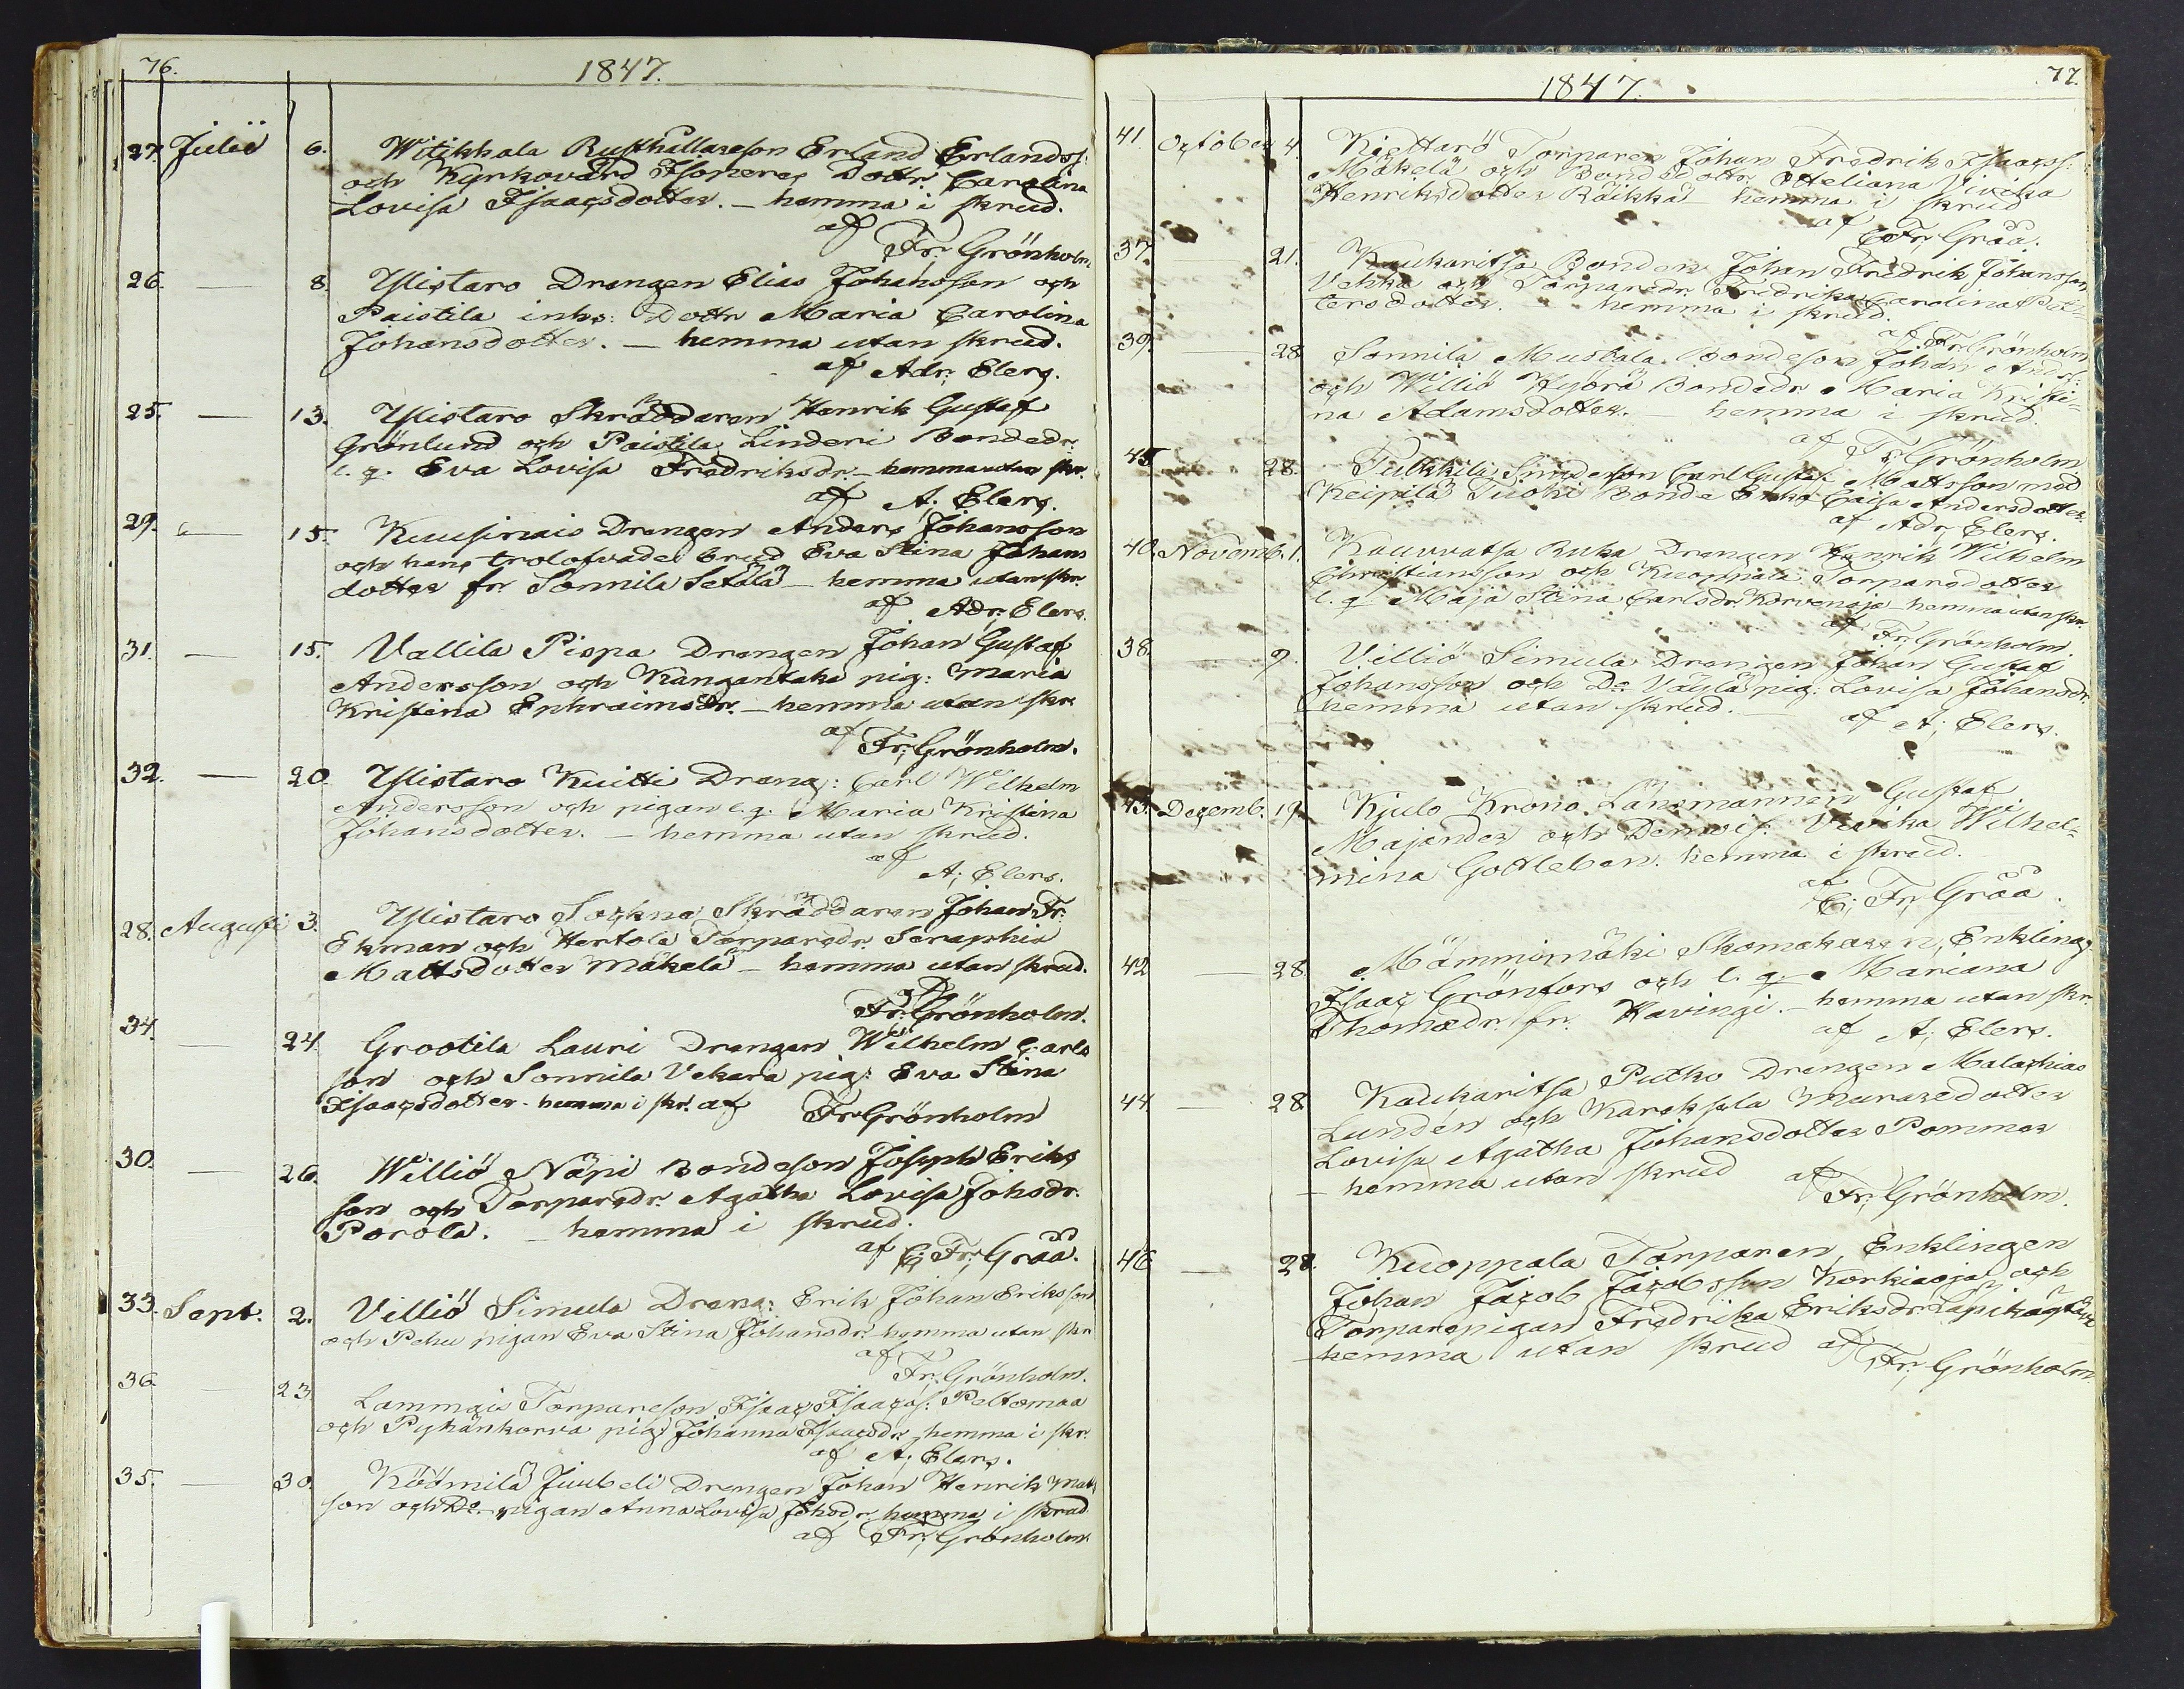 76.
1847.
27. Julii 6. Witikkala Rusthållareson Erland Erlandss:
och Kyrkovärd Isoneres Dottr. Carolina
Lovisa Isaacsdotter. – hemma i skrud.
af
Fr. Grönholm.
26. — 8. Ylistaro Drengen Elias Johansson och
Paistila inhs: Dottr Maria Carolina
Johansdotter. – hemma utan skrud.
af Adr. Elers.
25. — 13. Ylistaro Skräddaren Henrik Gustaf
Grönlund och Paistila Linderi Bondedr.
l. q. Eva Lovisa Fredriksdr. – hemma utan skr.
af A. Elers.
29. — 15. Kuusiniais Drengen Anders Johansson
och hans trolofvade brud Eva Stina Johans
dotter fr. Sonnila Setälä – hemma utan skr.
af Adr. Elers.
31. — 15. Vallila Pispa Drengen Johan Gustaf
Andersson och Kangantaka pig: Maria
Kristina Ephraimsdr. – hemma utan skr.
af Fr. Grönholm.
32. — 20. Ylistaro Kuitti Dreng: Carl Wilhelm
Andersson och pigan l.q. Maria Kristina
Johansdotter. – hemma utan skrud.
af
A. Elers.
28. Augusti 3. Ylistaro Sockne Skräddaren Johan Fr.
Ekman och Hertola Torparedr. Seraphia
Mattsdotter Mäkelä – hemma utan skrud.
af
Fr. Grönholm.
34. — 24. Grootila Lauri Drengen Wilhelm Carls
son och Sonnila Vekara pig: Eva Stina
Isaacsdotter – hemma i skr. af Fr Grönholm
30. — 26. Williö Näpi Bondeson Joseph Eriks
son och Torparedr. Agatha Lovisa Johsdr.
Porola. – hemma i skrud.
af C. Fr. Gråå.
33. Sept. 2. Villiö Simula Dreng: Erik Johan Eriksson
och Pehu pigan Eva Stina Johansdr. – hemma utan skr
af
Fr. Grönholm.
36 23. Lammais Torpareson Isaac Isaacss: Peltomaa
och Pyhänkorva pig: Johanna Isaacsdr. hemma i skr.
af A. Elers.
35. — 30. Köömilä Juubeli Drengen Johan Henrik Matts
son och Do pigan Anna Lovisa Johsdr. hemma i skrud
af Fr. Grönholm
77.
1847.
41. October 4. Kiettarö Torparen Johan Fredrik Isaacss:
Mäkelä och Bondedottr Heliana Vivika
Henriksdotter Räikkä – hemma i skrud
af C Fr. Gråå.
37. — 21. Kaukaritsa Bonden Johan Fredrik Johansson
Vekka och Torparedr. Fredrika Carolina Pet-
tersdotter. – hemma i skrud.
af Fr. Grönholm
39. — 28 Sonnila Mustala Bondeson Johan Andss:
och Williö Hyörä Bondedr. Maria Kristi=
na Adamsdotter. – hemma i skrud.
af Fr. Grönholm
45 28. Pulkkila Carl Gustaf Mattsson med
Keipilä Tuoki Bonde Enka Caisa Andersdotter.
af Adr Elers.
40. Novemb. 1. Kauvatsa Ruha Drengen Henrik Wilhelm
Christiansson och Kuoppala Torparedotter
l. q Maja Stina Carlsdr. Korvenoja – hemma utan skr.
af Fr. Grönholm.
38. — 9. Villiö Simula Drengen Johan Gustaf
Johansson och Do Väylä pig. Lovisa Johansdr.
hemma utan skrud. –
af A. Elers.
43. Decemb. 19 Kjulo Krono Länsmannen Gustaf
Majander och Demois: Vivika Wilhel=
mina Gottleben. hemma i skrud.
af
C. Fr. Gråå.
42 — 28. Mämmimäki Skomakaren, Enkling
Isaac Grönfors och l. q. Mariana
Thomædr. fr. Kavingi. – hemma utan skr.
af A. Elers.
44 — 28 Kaukaritsa Putko Drengen Malachias
Lundén och Karaksela Muraredotter
Lovisa Agatha Johansdotter Pommer
– hemma utan skrud af
Fr. Grönholm.
46 — 28. Kuoppala Torparen, Enklingen
Johan Jacob Jacobsson Korkiaoja och
Torparepigan Fredrika Eriksdr.
hemma utan skrud af
Fr. Grönholm.